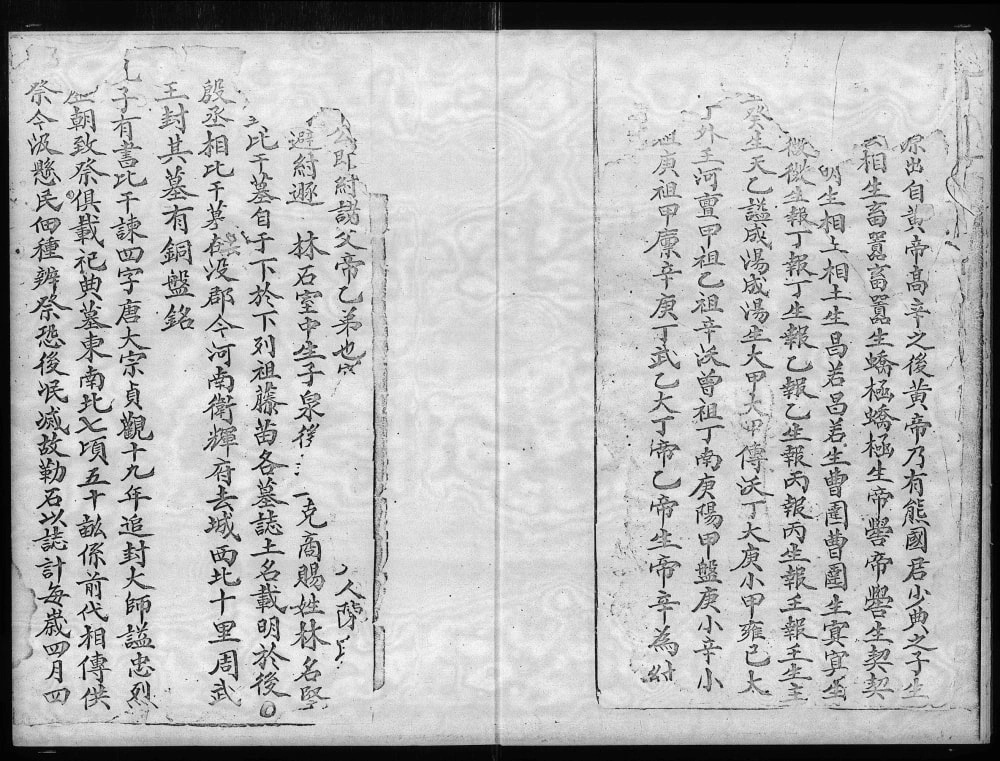 源出自黄帝高辛之後黄帝乃有熊國君少典之子生
相生畜嚚畜嚚生蟜極蟜極生帝嚳帝嚳生契契
明生相土相土生昌若昌若生曹圉曹圉生寘寘生
微微生報丁報丁生報乙報乙生報丙報丙生報王報王生主
癸生天乙謚成湯成湯生大甲大甲傳沃丁大庚小甲雍己太
丁外王河亶甲祖乙祖辛沃曾祖丁南庚陽甲盤庚小辛小
祖庚祖甲廩辛庚丁武乙大丁帝乙帝生帝辛為紂
公即紂諸父帝乙弟也 人隣
避紂遯 林石室中生子泉後 克商賜姓林名堅
比干墓自于下於下列祖藤苗各墓誌土名載明於後
殷丞相比干墓 汲郡今河南衛輝府去城西北十里周武
王封其墓有銅盤銘
子有書比干諫四字唐大宗貞觀十九年追封大師謚忠烈
朝致祭俱載祀典墓東南北七頃五十畝係前代相傳供
祭今汲縣民佃種辨祭恐後泯滅故勒石以誌計每歲四月四